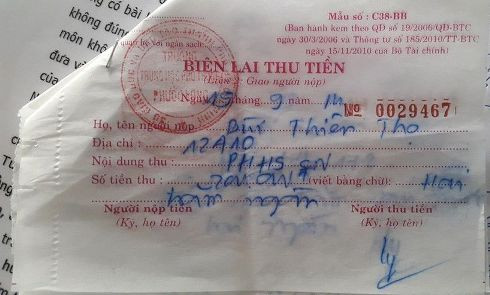 có bài
không đún
môn khô
đưa v
của
Mẫu số : C38-BB
(Ban hành kèm theo QĐ số 19/2006/QĐ-BTC
ngày 30/3/2006 và Thông tư số 185/2010/TT-BTC
ngày 15/11/2010 của Bộ Tài chính)
quan hệ với ngân sách
TRƯỜNG
BIÊN LAI THU TIỀN
(Liên 2: Giao người nộp)
15 tháng 9 năm 14
Nº 0029467
Họ, tên người nộp Thiên Thọ
Địa chỉ : 12A10
Nội dung thu : PHHS
Số tiền thu : (viết bằng chữ): Hai
trăm ngàn
Người nộp tiền
Người thu tiền
(Ký, họ tên)
(Ký, họ tên)